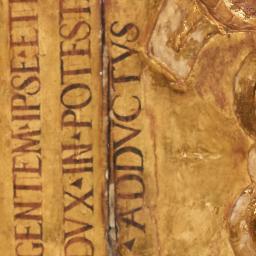 GENTEM·IPSE·ETI
DVX·IN·POTEST
ADDVCTVS